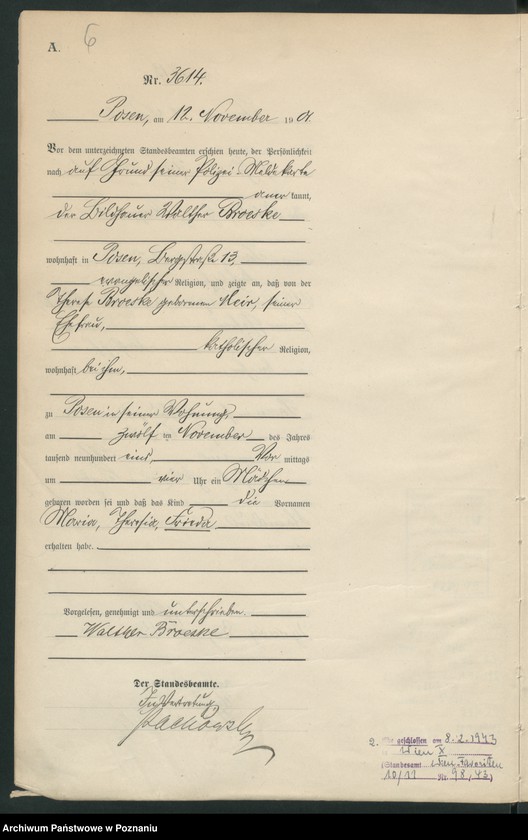 A. 6
Nr. 3614.
Posen, am 12. November 1901.
Vor dem unterzeichneten Standesbeamten erschien heute, der Persönlichkeit
nach auf Grund seiner Polizei-Meldekarte
aner kannt,
der Bildhauer Walther Broeske
wohnhaft in Posen, Bergstraße 13,
evangelischer Religion, und zeigte an, daß von der
Therese Broeske geborenen Meir, seiner
Ehefrau,
katholischer Religion,
wohnhaft bei ihm,
zu Posen in seiner Wohnung,
am zwölf ten November des Jahres
tausend neunhundert eins Vor mittags
um vier Uhr ein Mädchen
geboren worden sei und daß das Kind die Vornamen
Maria, Theresia, Frieda
erhalten habe.
Vorgelesen, genehmigt und unterschrieben.
Walther Broeske
Der Standesbeamte.
In Vertretung
2. Ehe geschlossen am 8.2.1943
in Wien X
(Standesamt Wien-Favoriten
10/11 Nr. 98/43)
Archiwum Państwowe w Poznaniu